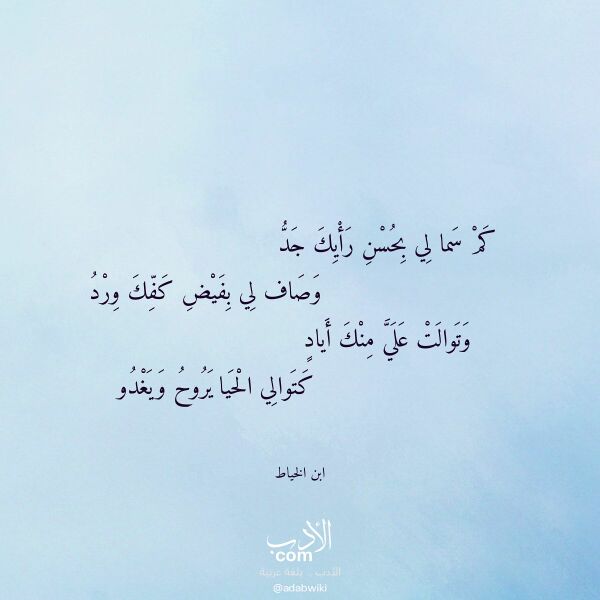 كَمْ سَما لِي بِحُسْنِ رَأْيِكَ جَدُّ
وَصَاف لِي بِفَيْضِ كَفِّكَ وِرْدُ
وَتَوالَتْ عَلَيَّ مِنْكَ أَيادٍ
كَتَوالِي الْحَيَا يَرُوحُ وَيَغْدُو
ابن الخياط
الأدب
com
الأدب .. بلغة عربية
@adabwiki